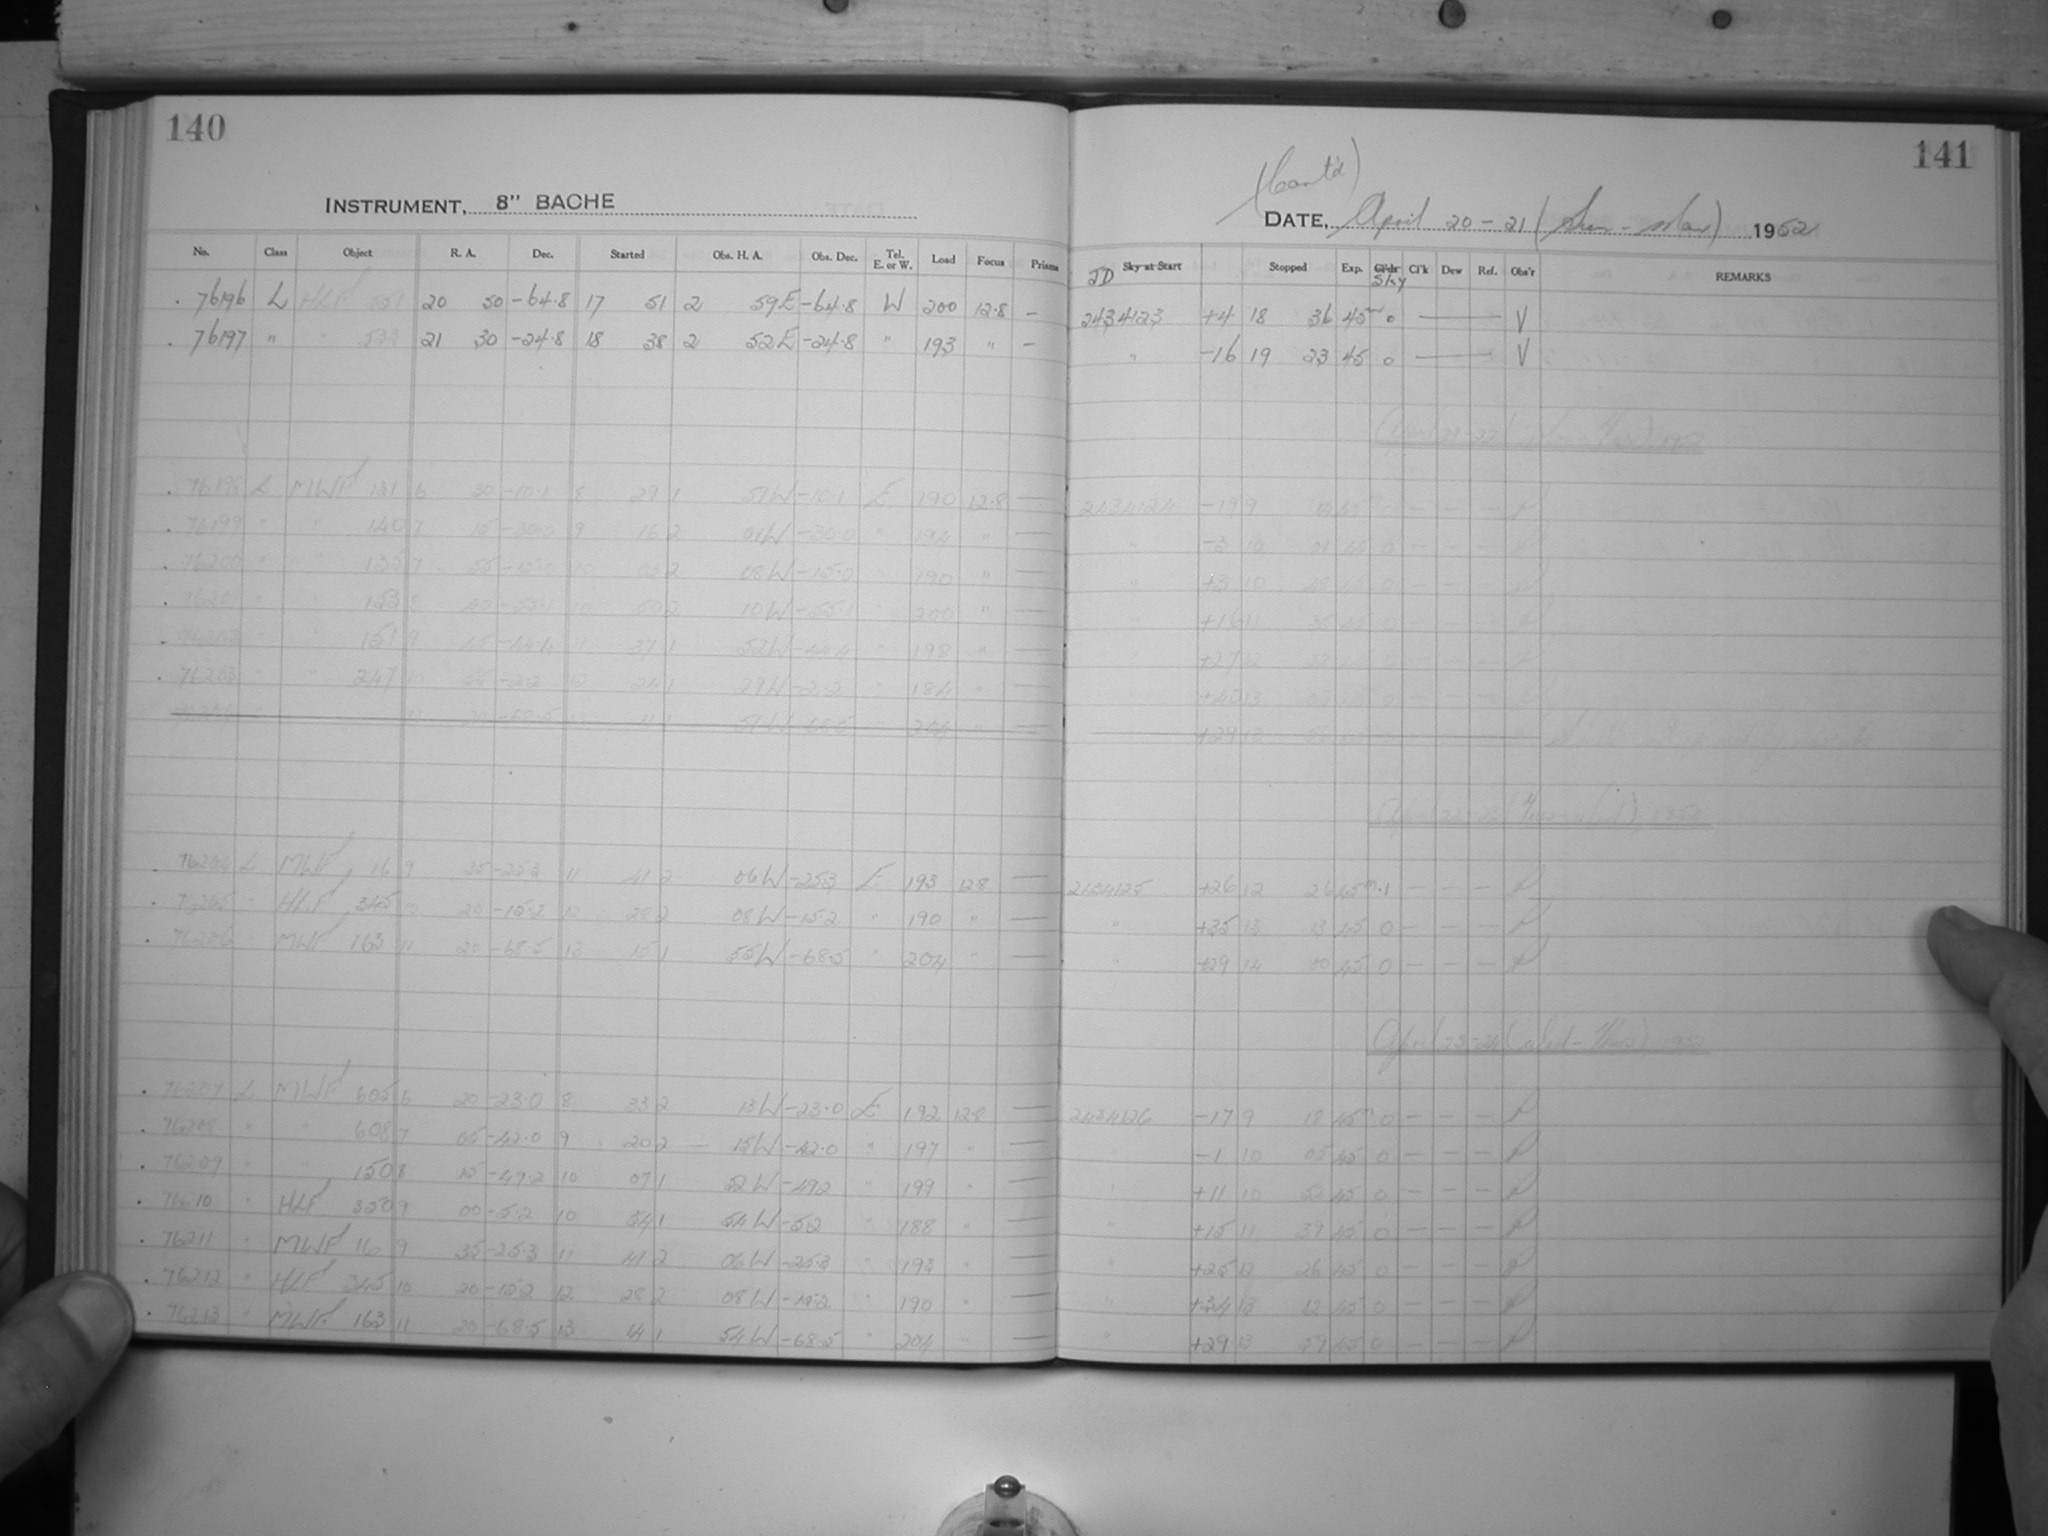 140
INSTRUMENT, 8" BACHE
No. Class Object R. A. Dec. Started Obs. H. A. Obs. Dec. Tel. E. or W. Load Focus Prisms
76196 L HLF 551 20 50 -64.8 17 51 2 59E -64.8 W 200 12.8 -
76197 " " 21 30 -24.8 18 38 2 52E -24.8 " 193 " -
76198 L MWF 131 6 30 -10.1 8 29 1 W -10.1 E 190 12.8 —
76199 " " 140 7 15 -30.0 9 16 2 01W -30.0 " 194 " —
76200 " " 7 -15.0 10 2 08W -15.0 " 190 " —
" " 153 8 -55.1 10 50 2 10W -55.1 " 200 " —
" " 151 9 -44.4 11 37 1 52W -44.4 " 198 " —
76203 " " 247 10 -2.2 12 24 1 29W -2.2 " 184 " —
204 "
76204 L MWF 16 9 35 -25.3 11 41 2 06W -25.3 E 193 12.8 —
76205 " HLF 345 10 20 -15.2 12 28 2 08W -15.2 " 190 " —
76206 " MWF 163 11 20 -68.5 13 15 1 55W -68.5 " 204 " —
76207 L MWF 605 6 20 -23.0 8 33 2 13W -23.0 E 192 12.8 —
76208 " " 608 7 05 -42.0 9 20 2 15W -42.0 " 197 " —
76209 " " 150 8 15 -49.2 10 07 1 52W -49.2 " 199 " —
76210 " HLF 350 9 00 -5.2 10 54 1 54W -5.2 " 188 " —
76211 " MWF 16 9 35 -25.3 11 41 2 06W -25.3 " 193 " —
76212 " HLF 345 10 20 -15.2 12 28 2 08W -15.2 " 190 " —
76213 " MWF 163 11 20 -68.5 13 14 1 54W -68.5 " 204 " —
141
(Cont'd)
DATE, April 20-21 (Sun-Mon) 1952
JD Sky at Start Stopped Exp. Sky Cl'k Dew Ref. Obs'r REMARKS
2434123 +4 18 36 45m 0 — V
" -16 19 23 45 0 — V
April 21-22 1952
2434124 -19 9 14 45m 0 — — — P
" -3 10 01 45 0 — — — P
" +3 10 48 45 0 — — — P
" +16 11 35 45 0 — — — P
+27 12 45 0 — — — P
+40 13 45 0 — — —
+29 12
April 22-23 (Tues-Wed) 1952
2434125 +26 12 26 45m .1 — — — P
" +35 13 13 45 0 — — — P
" +29 14 00 45 0 — — — P
April 23-24 (Wed-Thurs) 1952
2434126 -17 9 18 45m 0 — — — P
" -1 10 05 45 0 — — — P
" +11 10 52 45 0 — — — P
" +15 11 39 45 0 — — — P
" +25 12 26 45 0 — — — P
" +34 13 45 0 — — — P
" +29 13 59 45 0 — — — P